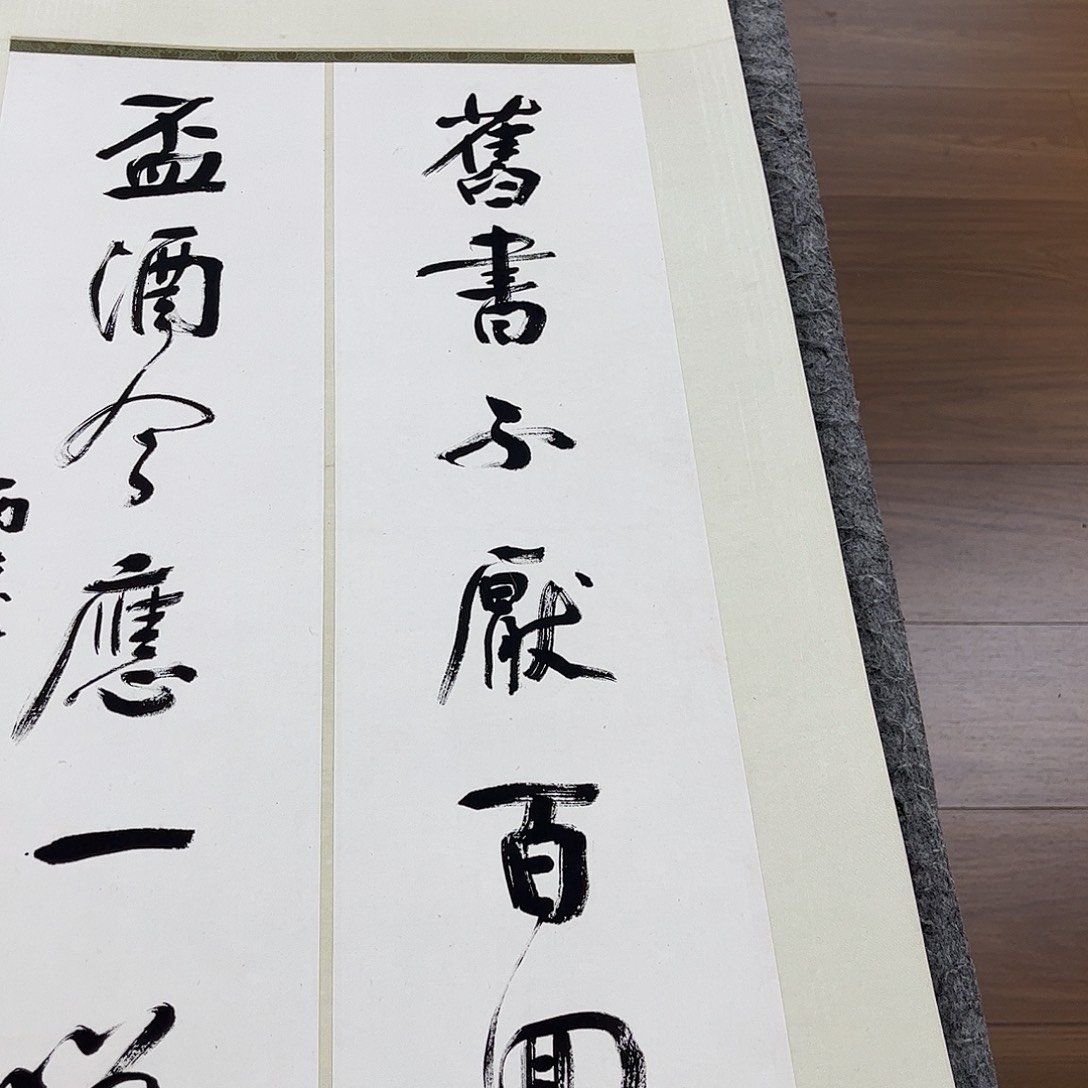 舊書不厭百回
盃酒今應一